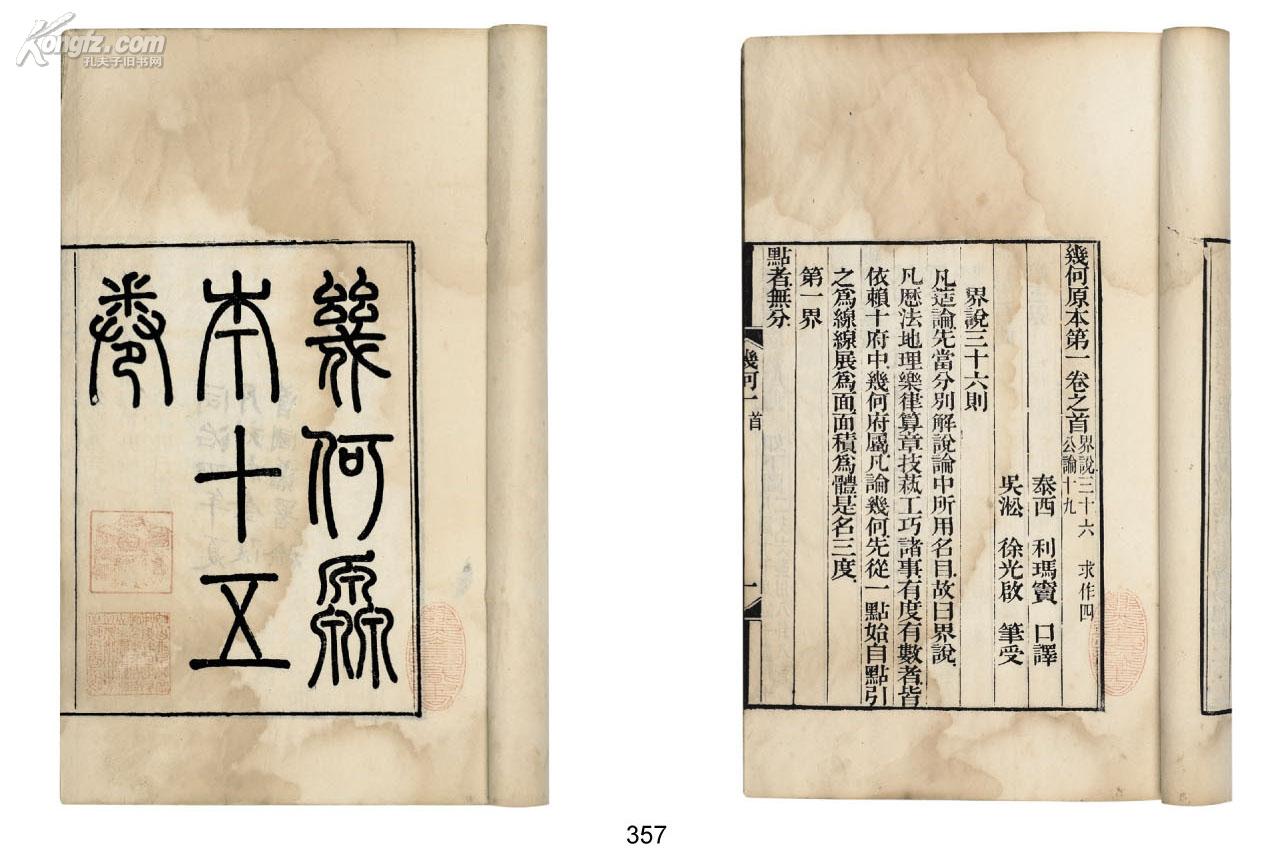 Kongfz.com
孔夫子旧书网
幾何原
本十五
卷
幾何原本第一卷之首 界說三十六 求作四
公論十九
泰西 利瑪竇 口譯
吳淞 徐光啟 筆受
界說三十六則
凡造論先當分別解說論中所用名目故曰界說
凡歷法地理樂律算章技藝工巧諸事有度有數者皆
依賴十府中幾何府屬凡論幾何先從一點始自點引
之爲線線展爲面面積爲體是名三度
第一界
點者無分
幾何一 首
一
357